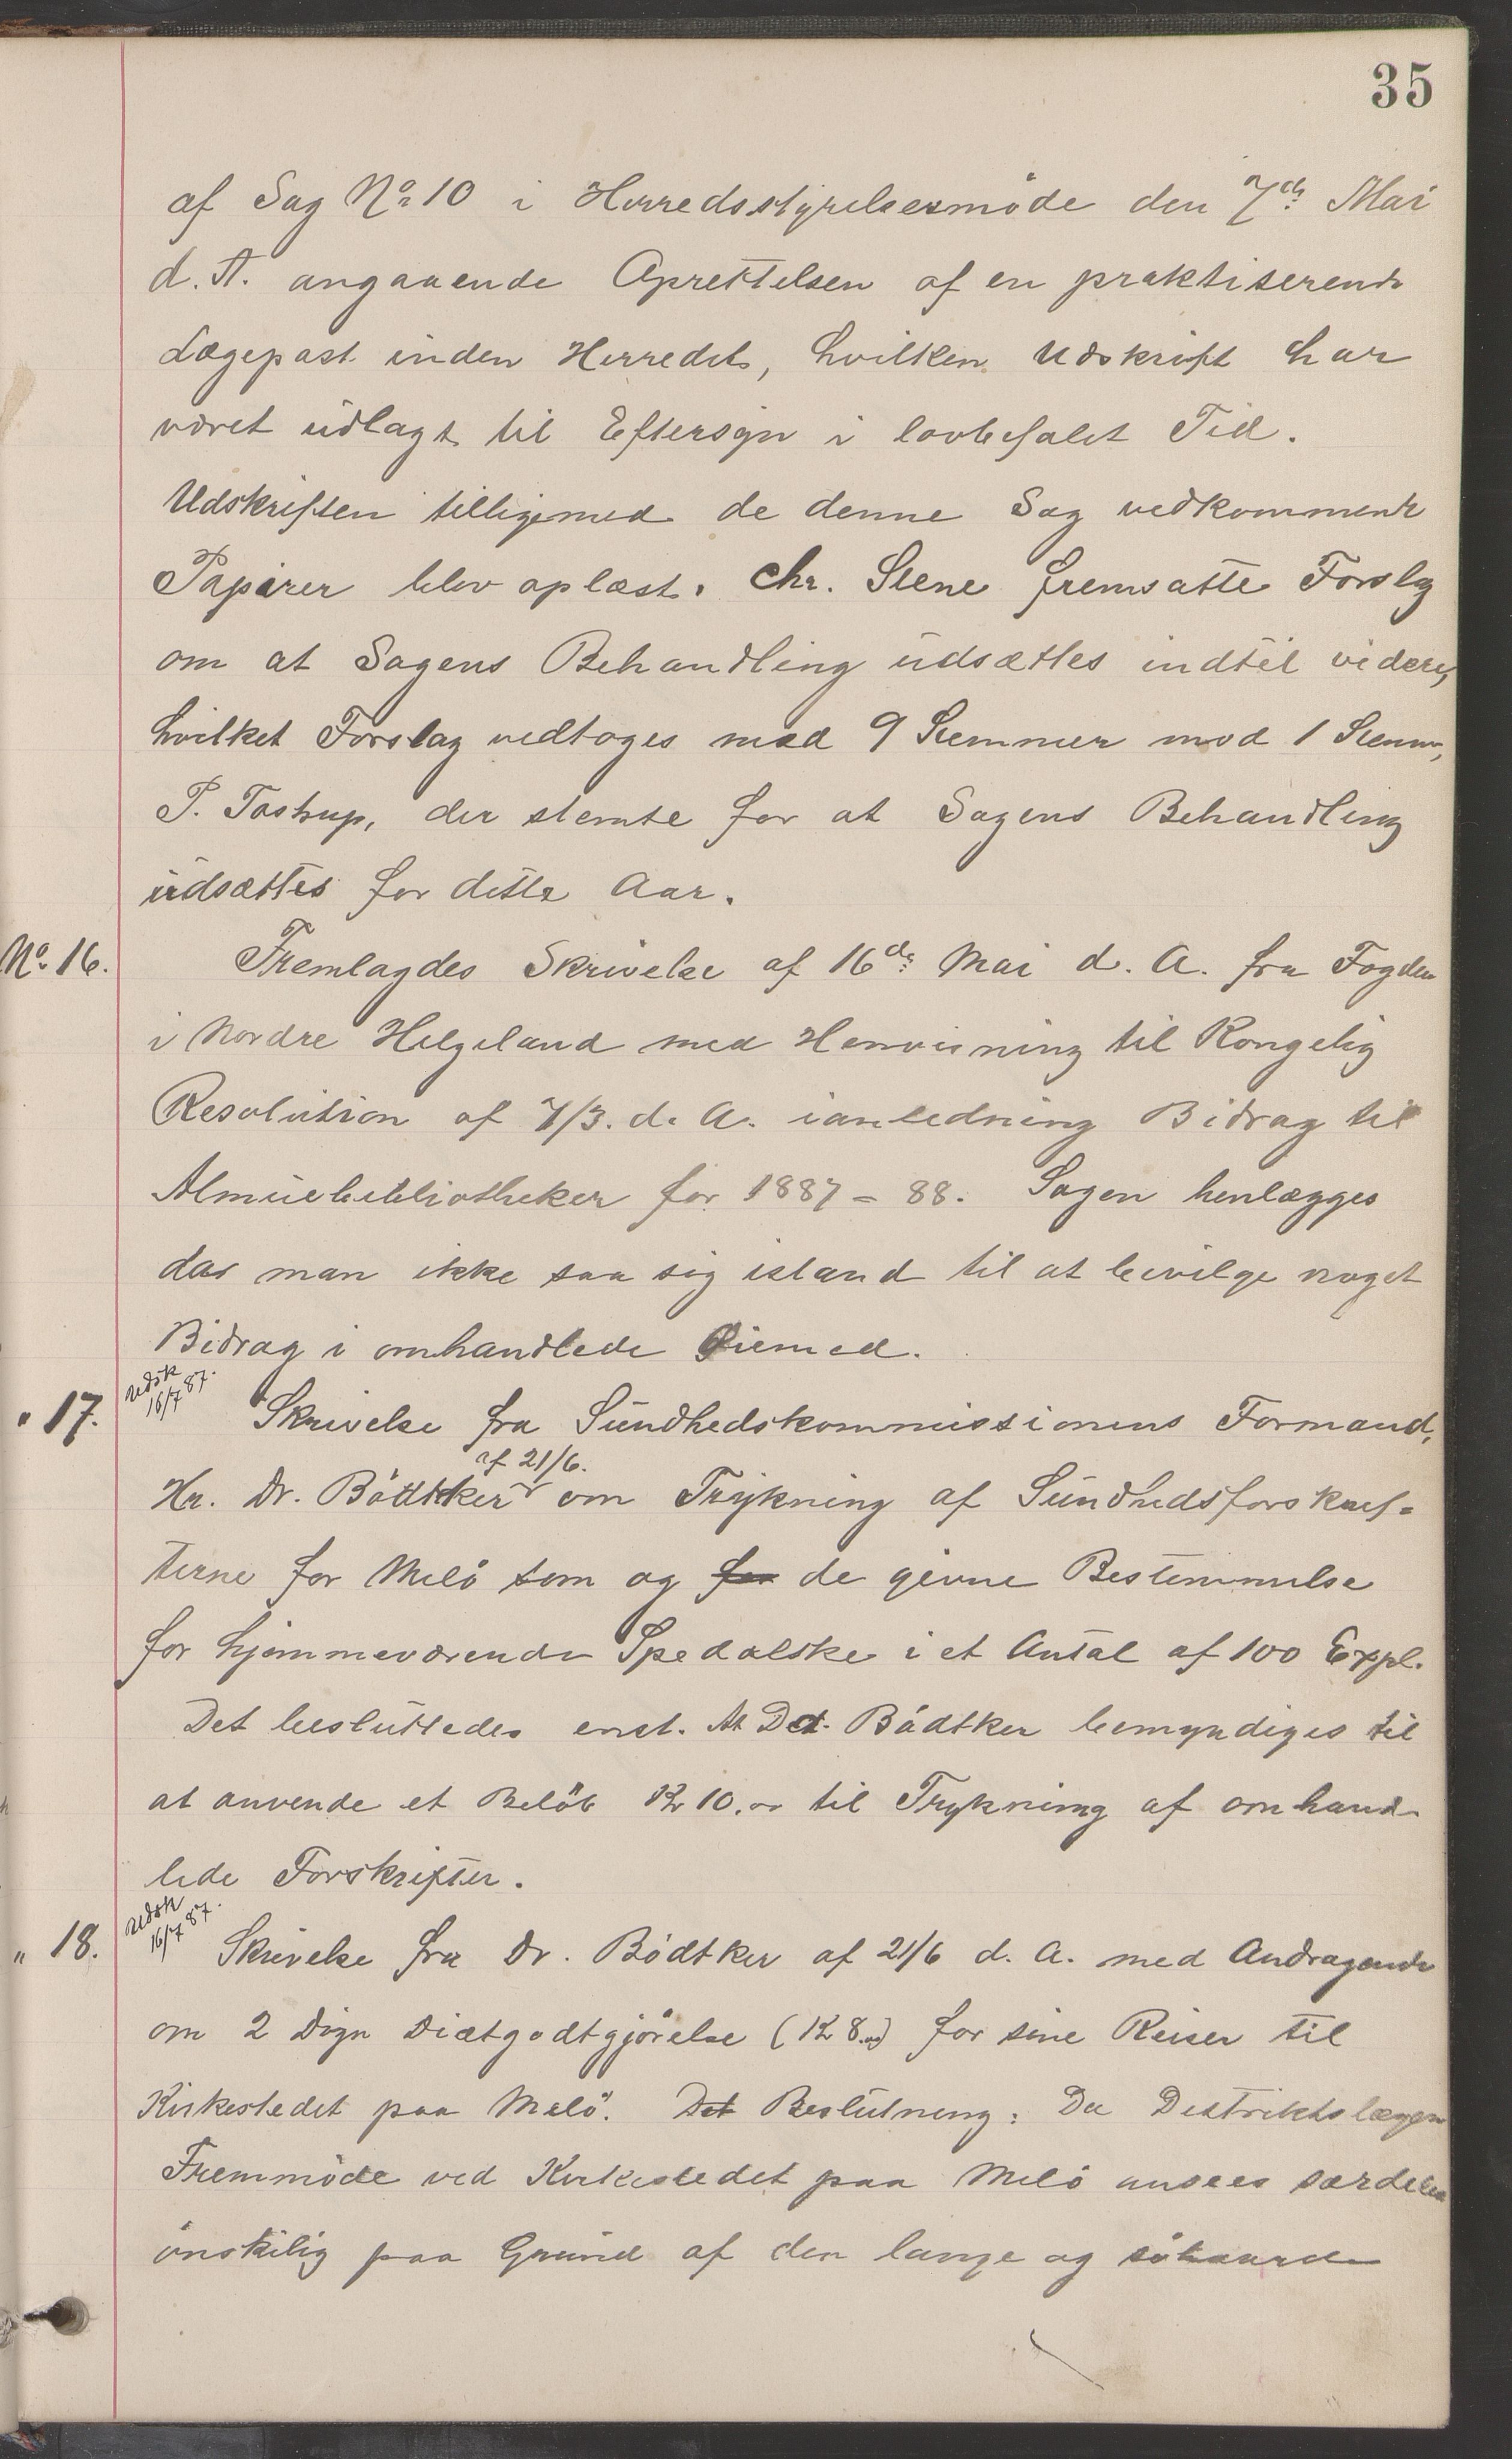 35
af Sag No 10 i Herredsstyrelsesmøde den 7de Mai
d. A. angaaende Oprettelsen af en praktiserende
Lægepost inden Herredet, hvilken Udskrift har
været udlagt til Eftersyn i lovbefalet Tid.
Udskriften tilligemed de denne Sag vedkommende
Papirer blev oplæst. Chr. Stene fremsatte Forslag
om at Sagens Behandling udsættes indtil videre,
hvilket Forslag vedtoges med 9 Stemmer mod 1 Stemme,
P. Tostrup, der stemte for at Sagens Behandling
udsættes for dette Aar.
No 16. Fremlagdes Skrivelse af 16de Mai d. A. fra Fogden
i Nordre Helgeland med Henvisning til Kongelig
Resolution af 7/3. d. A. ianledning Bidrag til
Almuebibliotheker for 1887-88. Sagen henlægges
da man ikke saa sig istand til at bevilge noget
Bidrag i omhandlede Øiemed.
" 17. Udsk 16/7 87. Skrivelse fra Sundhedskommissionens Formand,
af 21/6.
Hr. Dr. Bödtker om Trykning af Sundhedsforskrif-
terne for Melö som og for de givne Bestemmelse
for hjemmeværende Spedalske i et Antal af 100 Expl.
Det besluttedes enst. At Dr. Bödtker bemyndiges til
at anvende et Belöb Kr 10.00 til Trykning af omhand-
lede Forskrifter.
" 18. Udsk 16/7 87. Skrivelse fra Dr. Bödtker af 21/6 d. A. med Andragende
om 2 Dögn Diætgodtgjörelse (Kr 8.00) for sine Reiser til
Kirkestedet paa Melö. Det Beslutning: Da Distriktslægens
Fremmöde ved Kirkestedet paa Melö ansees særdeles
önskelig paa Grund af den lange og söhaarde